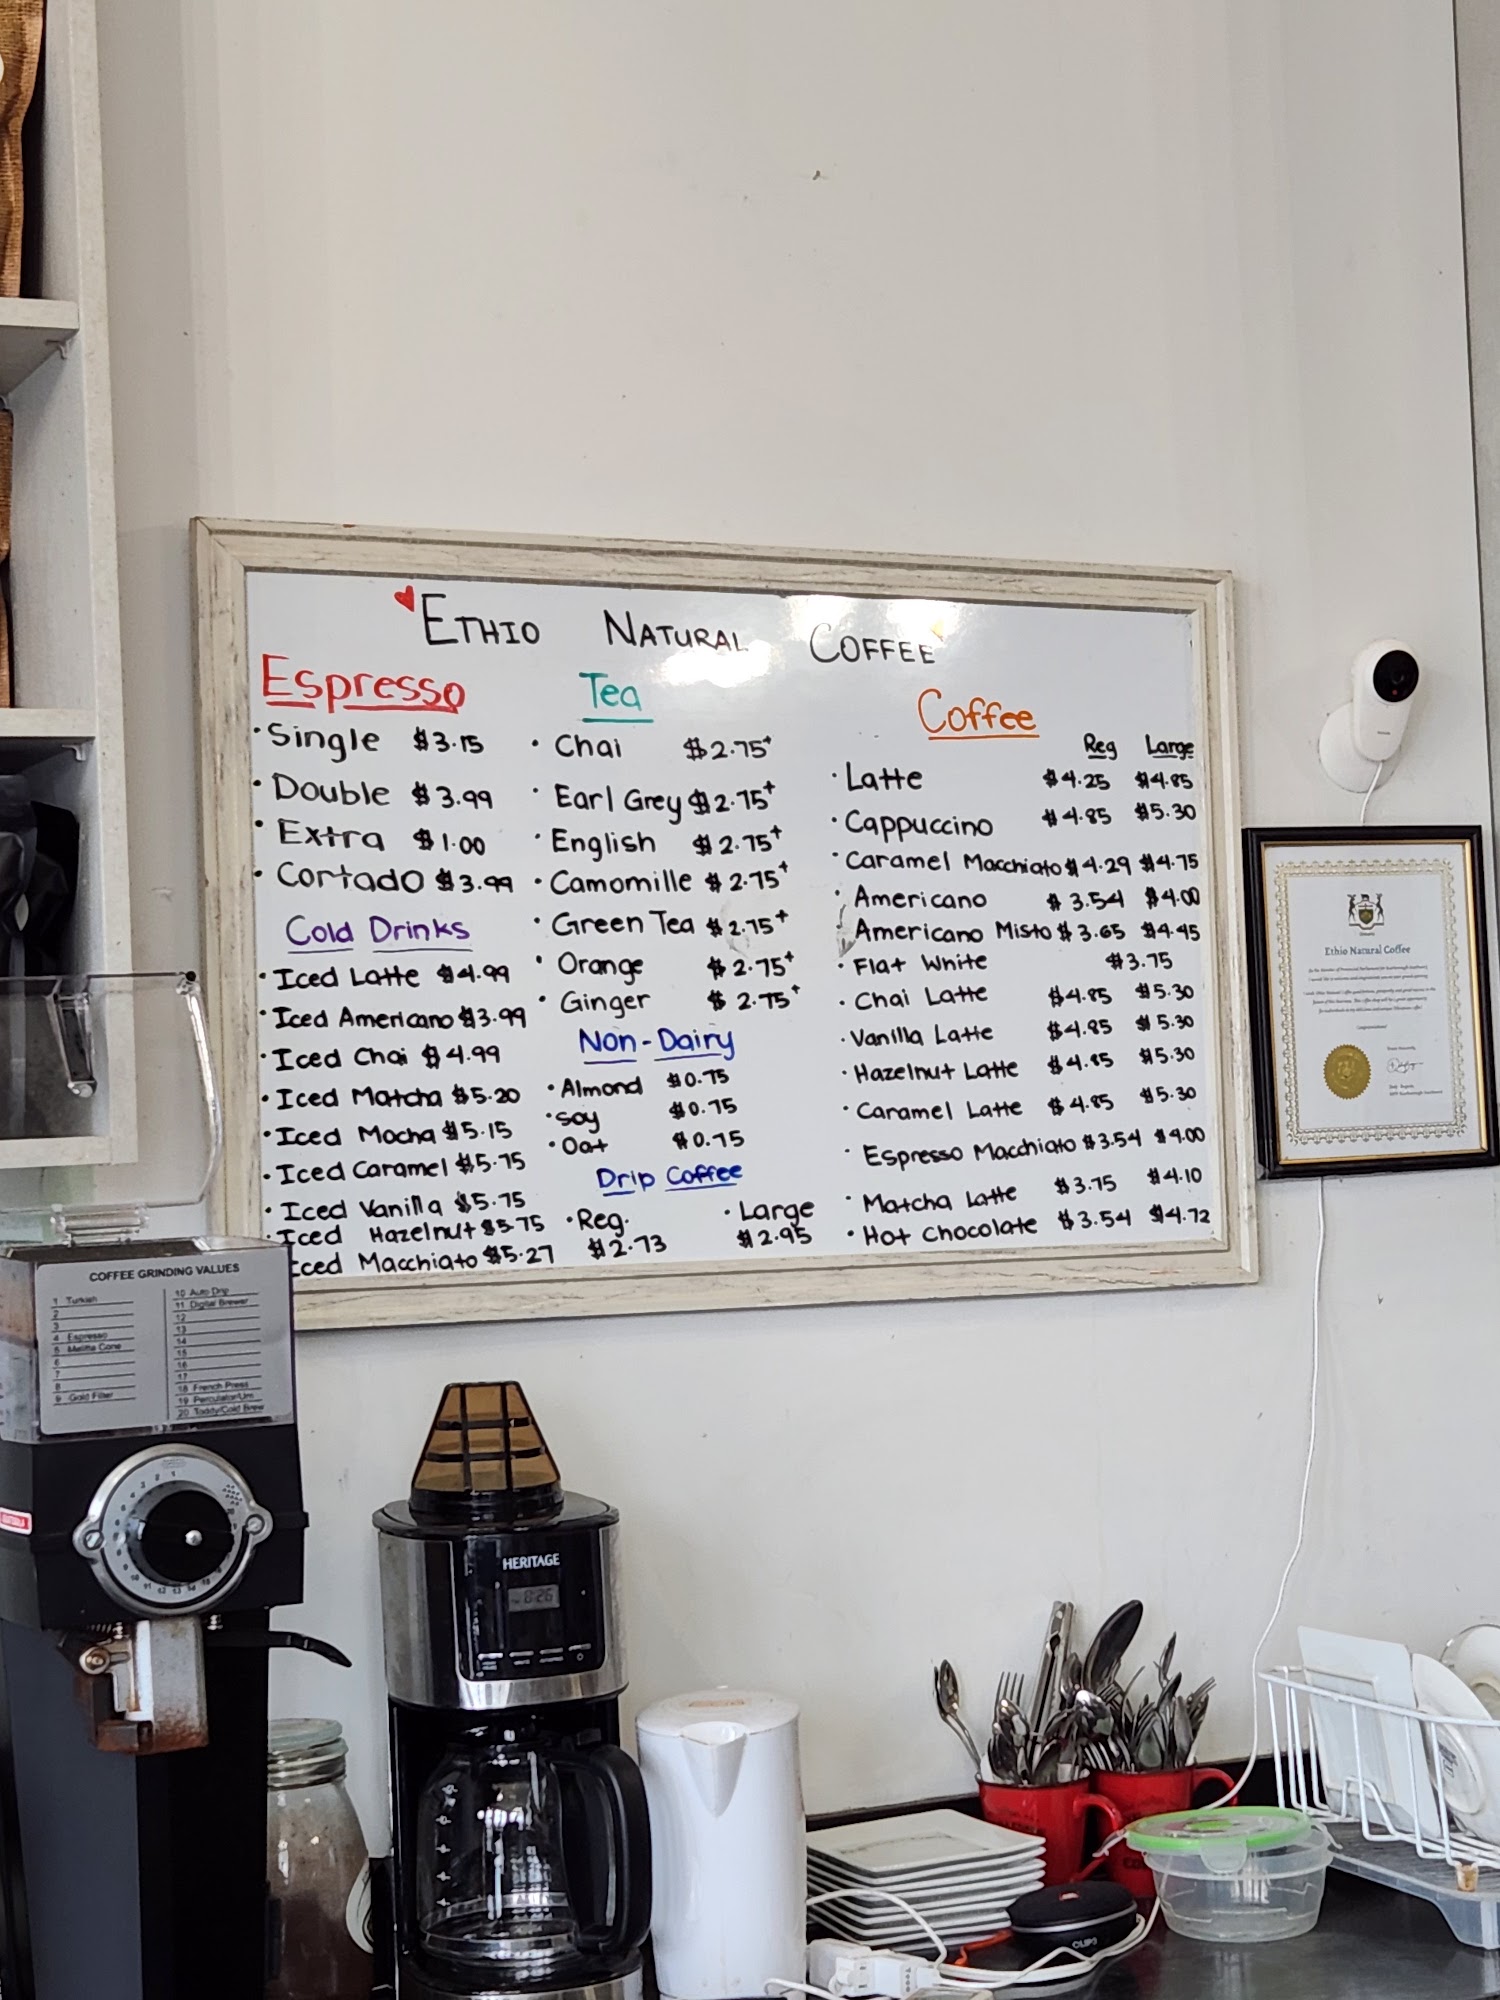 Ethio Natural Coffee
Espresso
• Single $3.15
• Double $3.99
• Extra $1.00
• Cortado $3.99
Cold Drinks
• Iced Latte $4.99
• Iced Americano $3.99
• Iced Chai $4.99
• Iced Matcha $5.20
• Iced Mocha $5.15
• Iced Caramel $5.75
• Iced Vanilla $5.75
Iced Hazelnut $5.75
Iced Macchiato $5.27
Tea
• Chai $2.75+
• Earl Grey $2.75+
• English $2.75+
• Camomille $2.75+
• Green Tea $2.75+
• Orange $2.75+
• Ginger $2.75+
Non-Dairy
• Almond $0.75
• Soy $0.75
• Oat $0.75
Drip Coffee
• Reg. • Large
$2.73 $2.95
Coffee
Reg Large
• Latte $4.25 $4.85
• Cappuccino $4.85 $5.30
• Caramel Macchiato $4.29 $4.75
Americano $3.54 $4.00
Americano Misto $3.65 $4.45
• Flat White $3.75
• Chai Latte $4.85 $5.30
• Vanilla Latte $4.85 $5.30
• Hazelnut Latte $4.85 $5.30
• Caramel Latte $4.85 $5.30
• Espresso Macchiato $3.54 $4.00
• Matcha Latte $3.75 $4.10
• Hot Chocolate $3.54 $4.72
Ethio Natural Coffee
COFFEE GRINDING VALUES
1 Turkish
2
3
4 Espresso
5 Melitta Cone
6
7
8
9 Gold Filter
10 Auto Drip
11 Digital Brewer
12
13
14
15
16
17
18 French Press
19 Perculator/Urn
20 Toddy/Cold Brew
HERITAGE
8:26
CLIP3